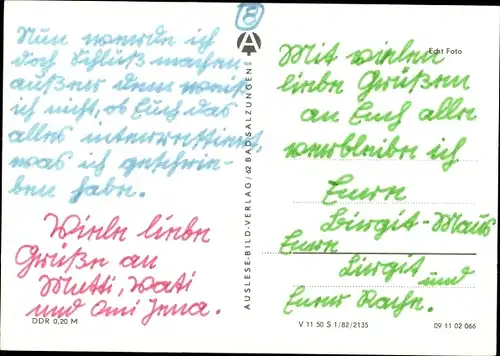 6
Nun werde ich
doch Schluß machen
außer dem weiß
ich nicht, ob Euch das
alles interressiert,
was ich geschrie-
ben habe.
Viele liebe
Grüße an
Mutti, Vati
und Omi Jena.
DDR 0,20 M
AUSLESE-BILD-VERLAG/62 BAD SALZUNGEN
Echt Foto
Mit vielen
liebe Grüßen
an Euch alle
verbleibe ich
Eure
Birgit-Maus
Eure
Birgit und
Euer
V 11 50 S 1/82/2135
09 11 02 066